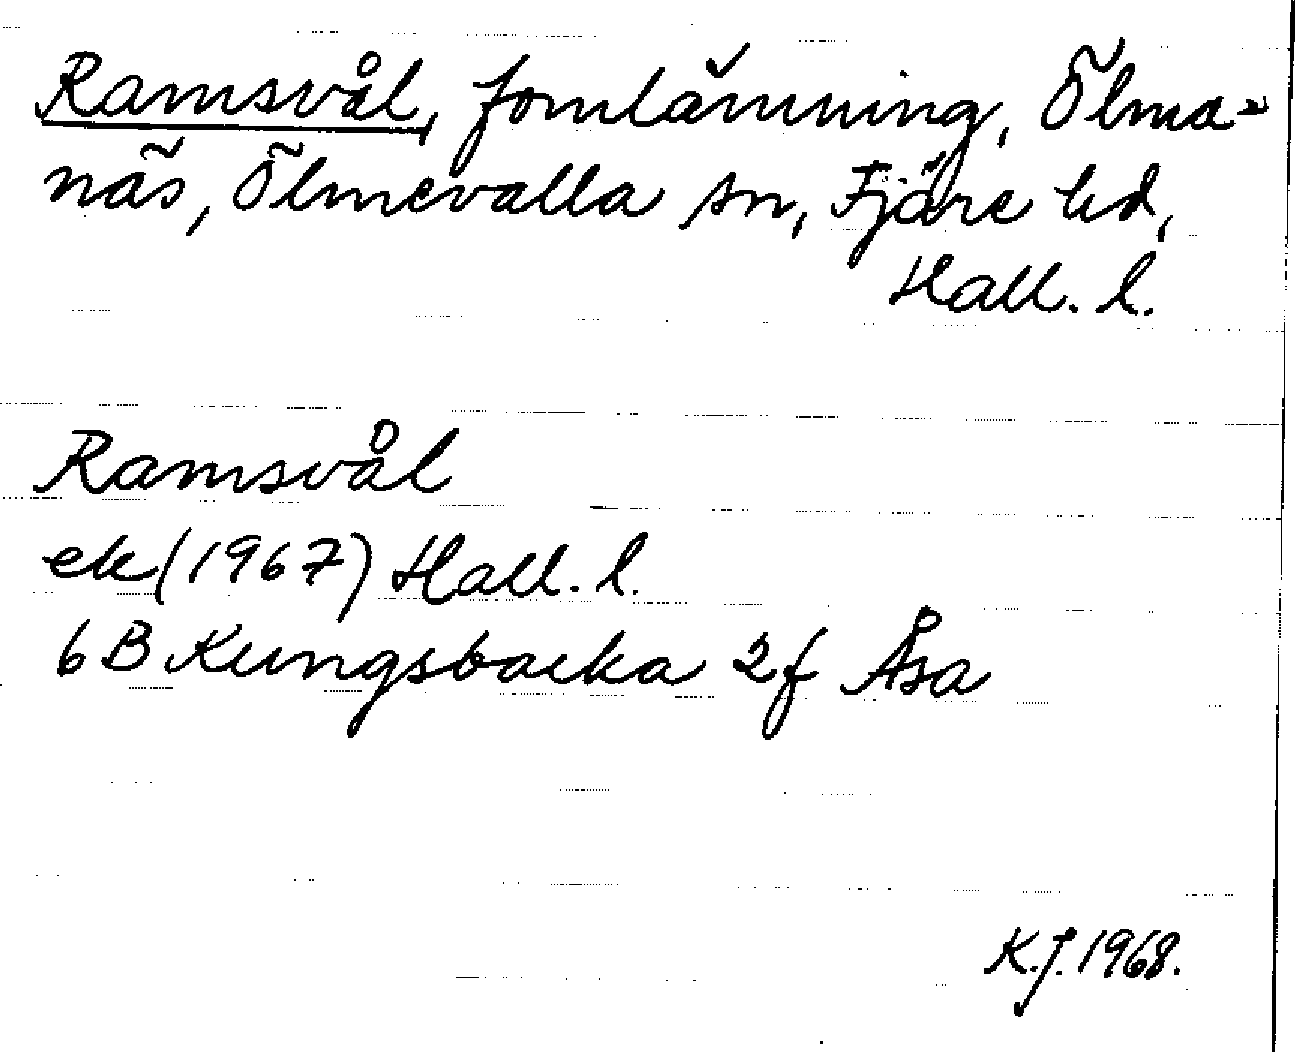 Ramsvål, fornlämning, Ölma-
näs, Ölmevalla sn, Fjäre hd,
Hall. l.
Ramsvål
ek (1967) Hall. l.
6B Kungsbacka 2f Åsa
K.J. 1968.